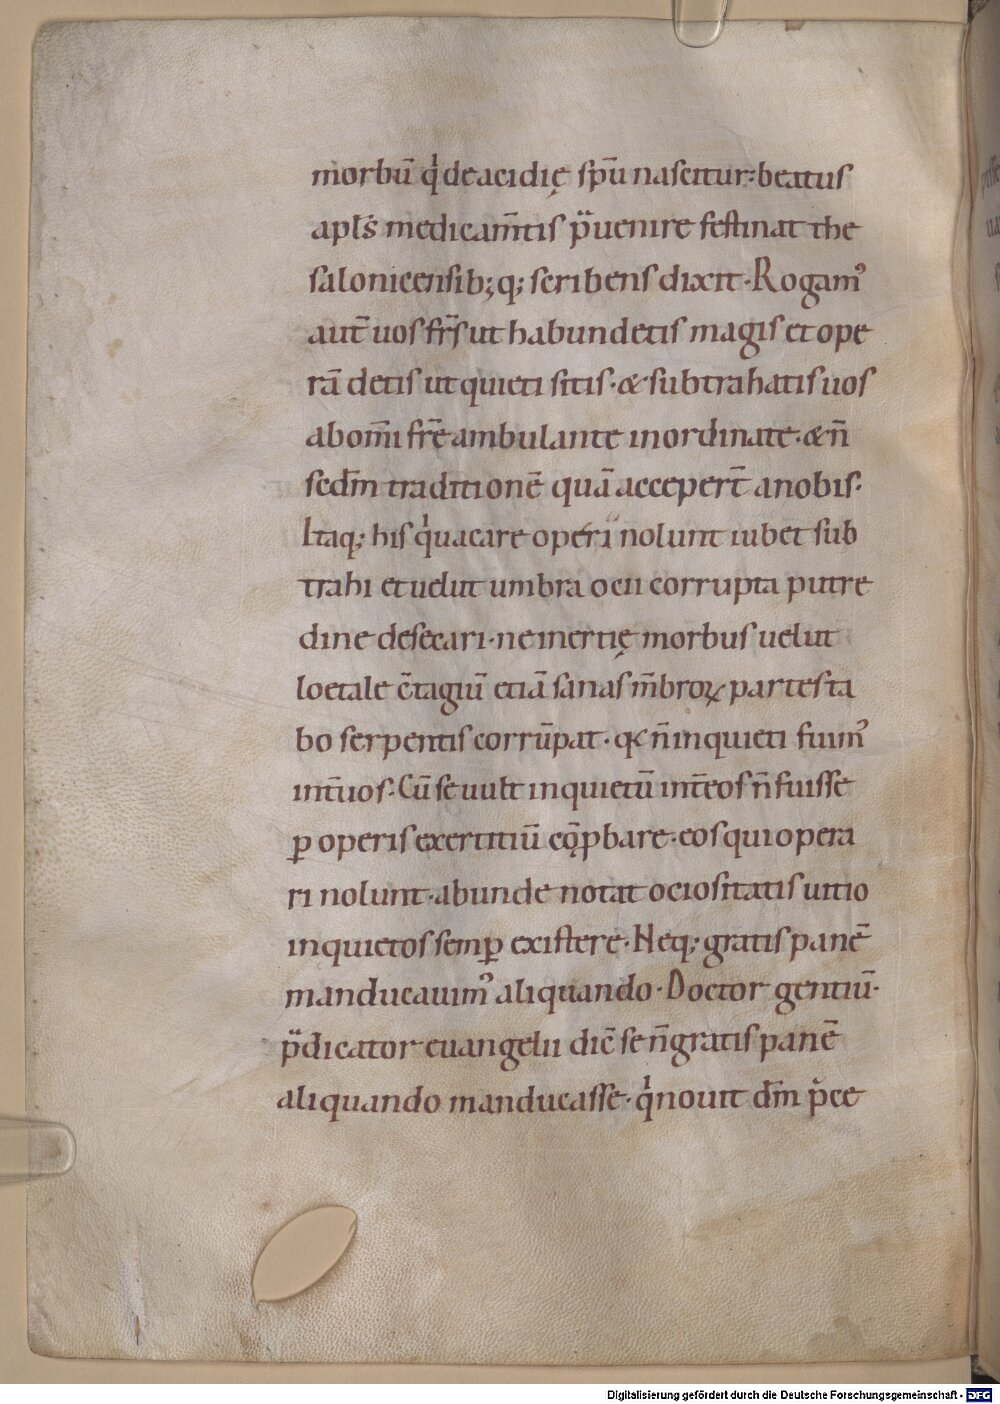 morbū qͥ de acidię sp̄u nascitur· beatus
apl̄s medicam̄tis p̄uenire festinat the
salonicensib; q; scribens dixit· Rogamꝰ
aut̄ uos fr̄s ut habundetis magis et ope
rā detis ut quieti sitis· & subtrahatis uos
ab om̄i fr̄e ambulante inordinate· & n̄
secd̄m traditionē quā acceper̄t a nobis·
Itaq; his qͥ uacare operi nolunt iubet sub
trahi et uelut umbra ocii corrupta putre
dine desecari· ne inertię morbus uelut
loetale c̄tagiū etiā sanas m̄broꝝ partes ta
bo serpentis corrūpat· qꝛ n̄ inquieti fuimꝰ
int̄ uos· Cū se uult inquietū int̄ eos n̄ fuisse
ꝑ operis exertitiū cōp̱bare· eos qui opera
ri nolunt· abunde notat ociositatis uitio
inquietos semꝑ existere· Neq; gratis panē
manducauimꝰ aliquando· Doctor gentiū·
p̄dicator euangelii dic̄ se n̄ gratis panē
aliquando manducasse· qͥ nouit dm̄ p̄ce
Digitalisierung gefördert durch die Deutsche Forschungsgemeinschaft - DFG